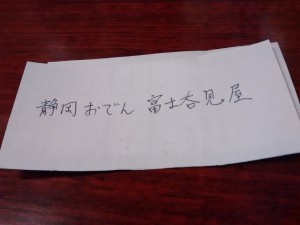 静岡おでん 富士呑見屋